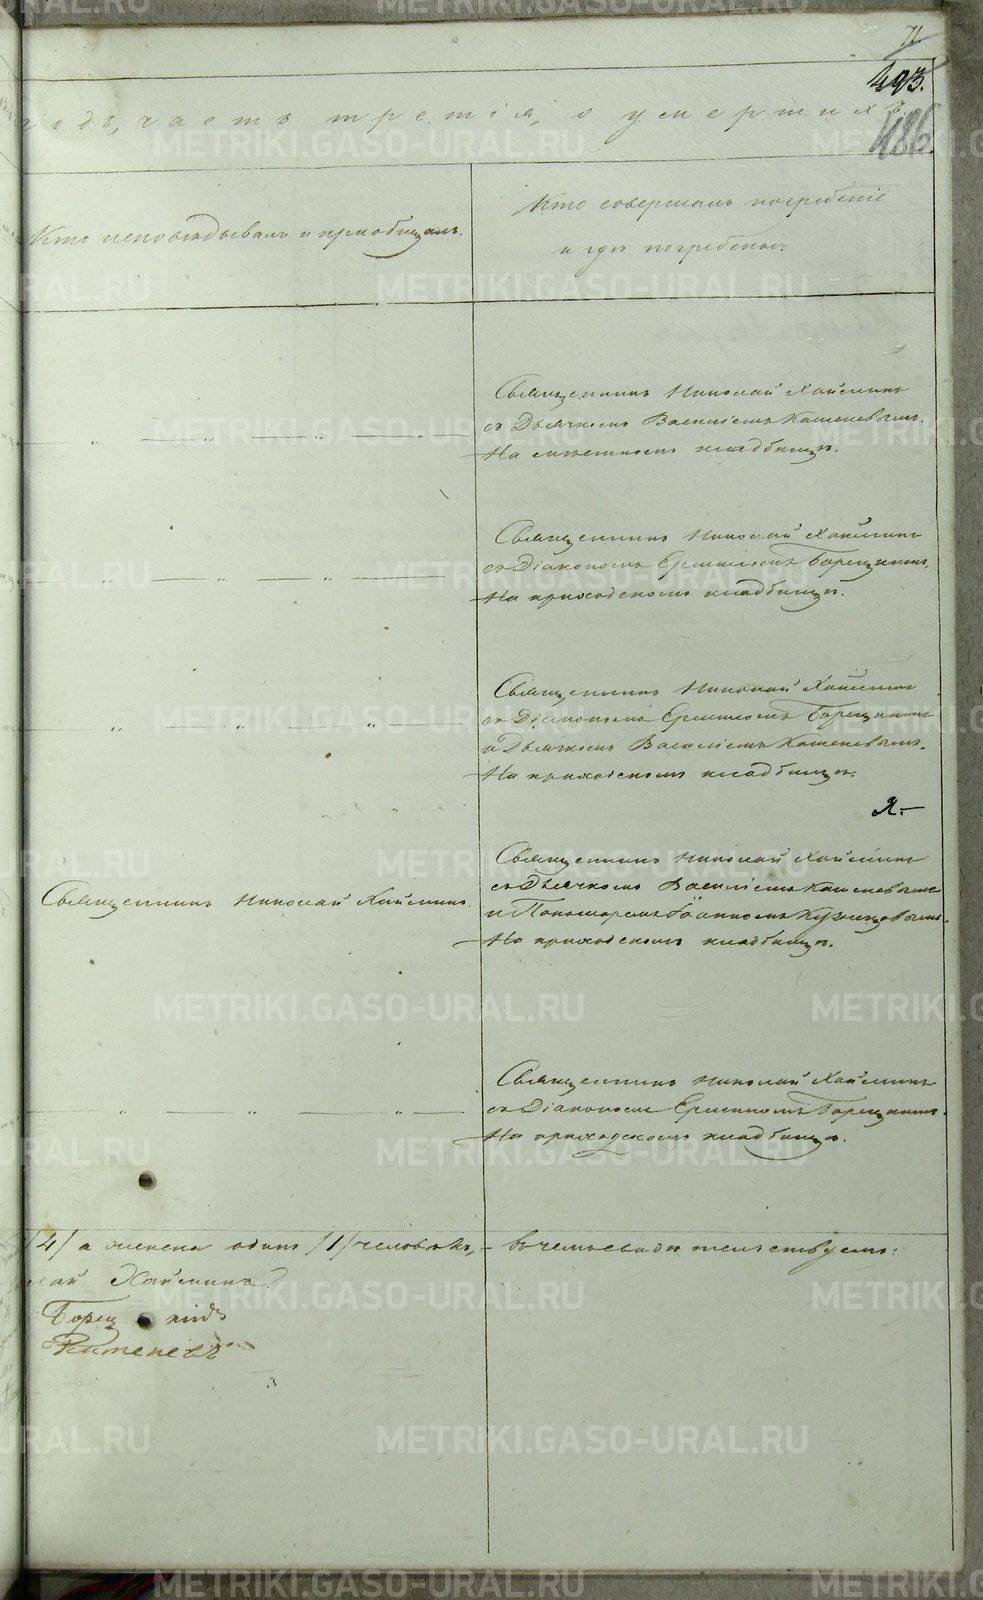 71.
493.
486.
годъ, часть третія, о умершихъ
Кто исповѣдывалъ и пріобщалъ.
Кто совершалъ погребеніе
и гдѣ погребены.
Священникъ Николай Хайминъ
съ Дьячкомъ Василіемъ
На мѣстномъ кладбищѣ.
Священникъ Николай Хайминъ
съ Діакономъ Борецкимъ.
На приходскомъ кладбищѣ.
Священникъ Николай Хайминъ
съ Діакономъ Борецкимъ
и Дьячкомъ Василіемъ
На приходскомъ кладбищѣ.
Священникъ Николай Хайминъ.
Священникъ Николай Хайминъ
съ Дьячкомъ Василіемъ
и Пономаремъ Іоанномъ Кузнецовымъ.
На приходскомъ кладбищѣ.
Священникъ Николай Хайминъ
съ Діакономъ Борецкимъ.
На приходскомъ кладбищѣ.
/4/ а женска одинъ /1/ человѣкъ, – въ чемъ свидѣтельствуемъ:
лай Хайминъ
METRIKI.GASO-URAL.RU